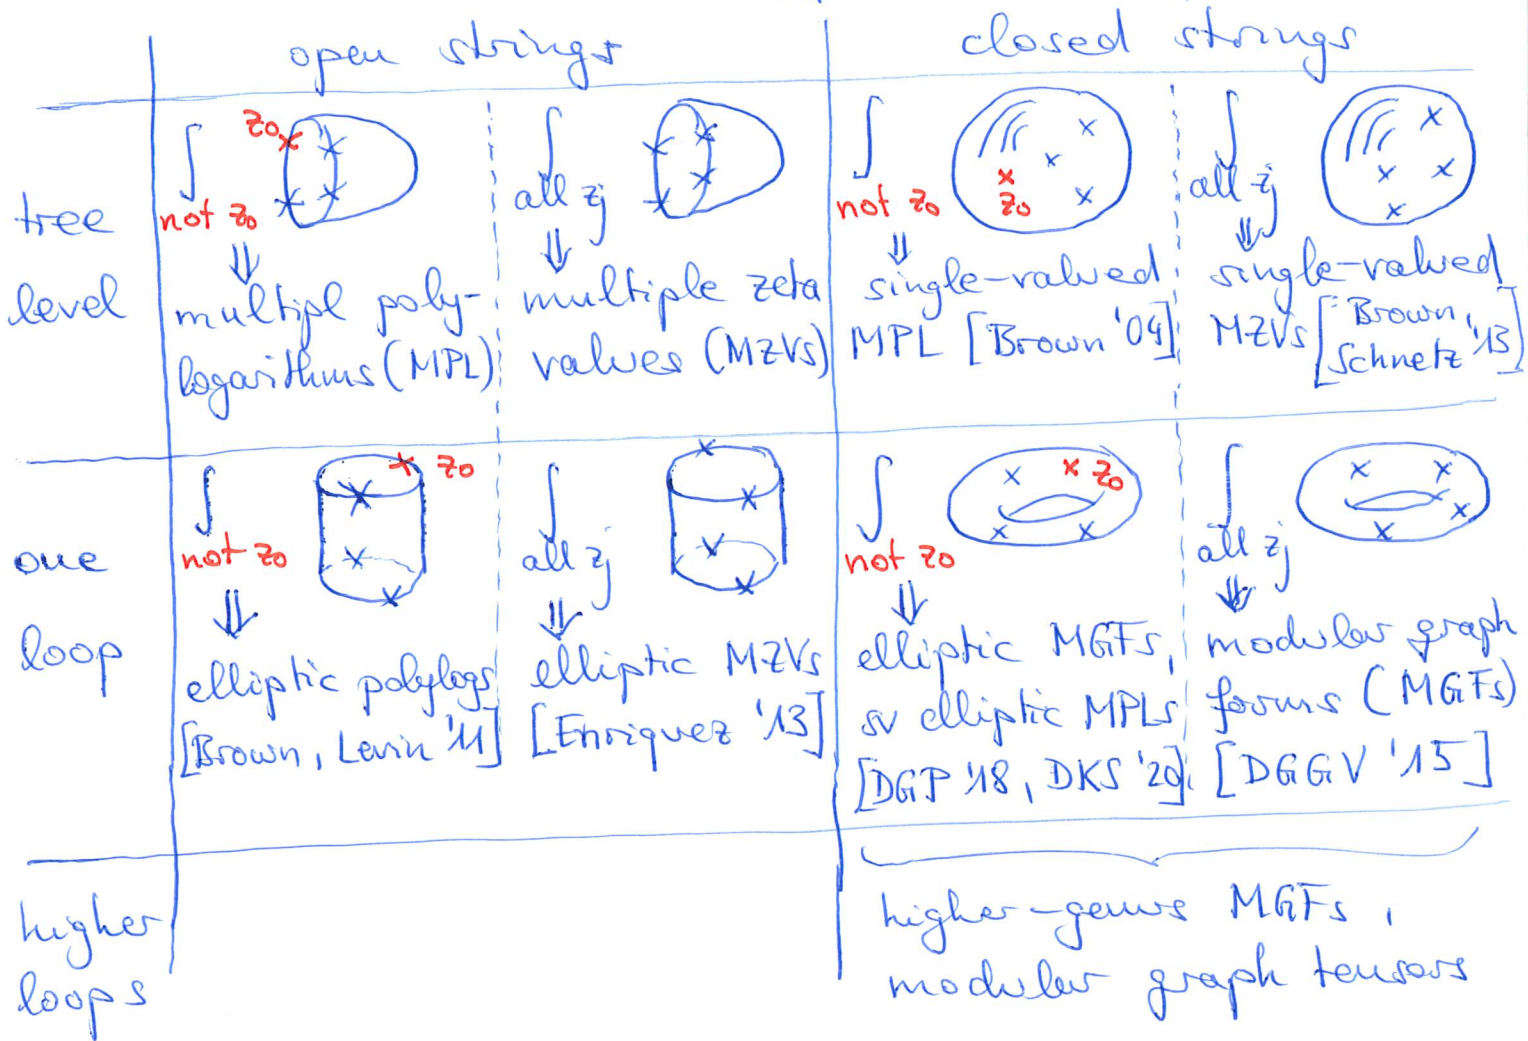 open strings
closed strings
tree
level
∫
not z₀
z₀
⇓
multipl poly-
logarithms (MPL)
∫
all zⱼ
⇓
multiple zeta
values (MZVs)
∫
not z₀
z₀
⇓
single-valued
MPL [Brown '04]
∫
all zⱼ
⇓
single-valued
MZVs [Brown,
Schnetz '13]
one
loop
∫
not z₀
z₀
⇓
elliptic polylogs
[Brown, Levin '11]
∫
all zⱼ
⇓
elliptic MZVs
[Enriquez '13]
∫
not z₀
z₀
⇓
elliptic MGFs,
sv elliptic MPLs
[DGP '18, DKS '20]
∫
all zⱼ
⇓
modular graph
forms (MGFs)
[DGGV '15]
higher
loops
higher-genus MGFs,
modular graph tensors